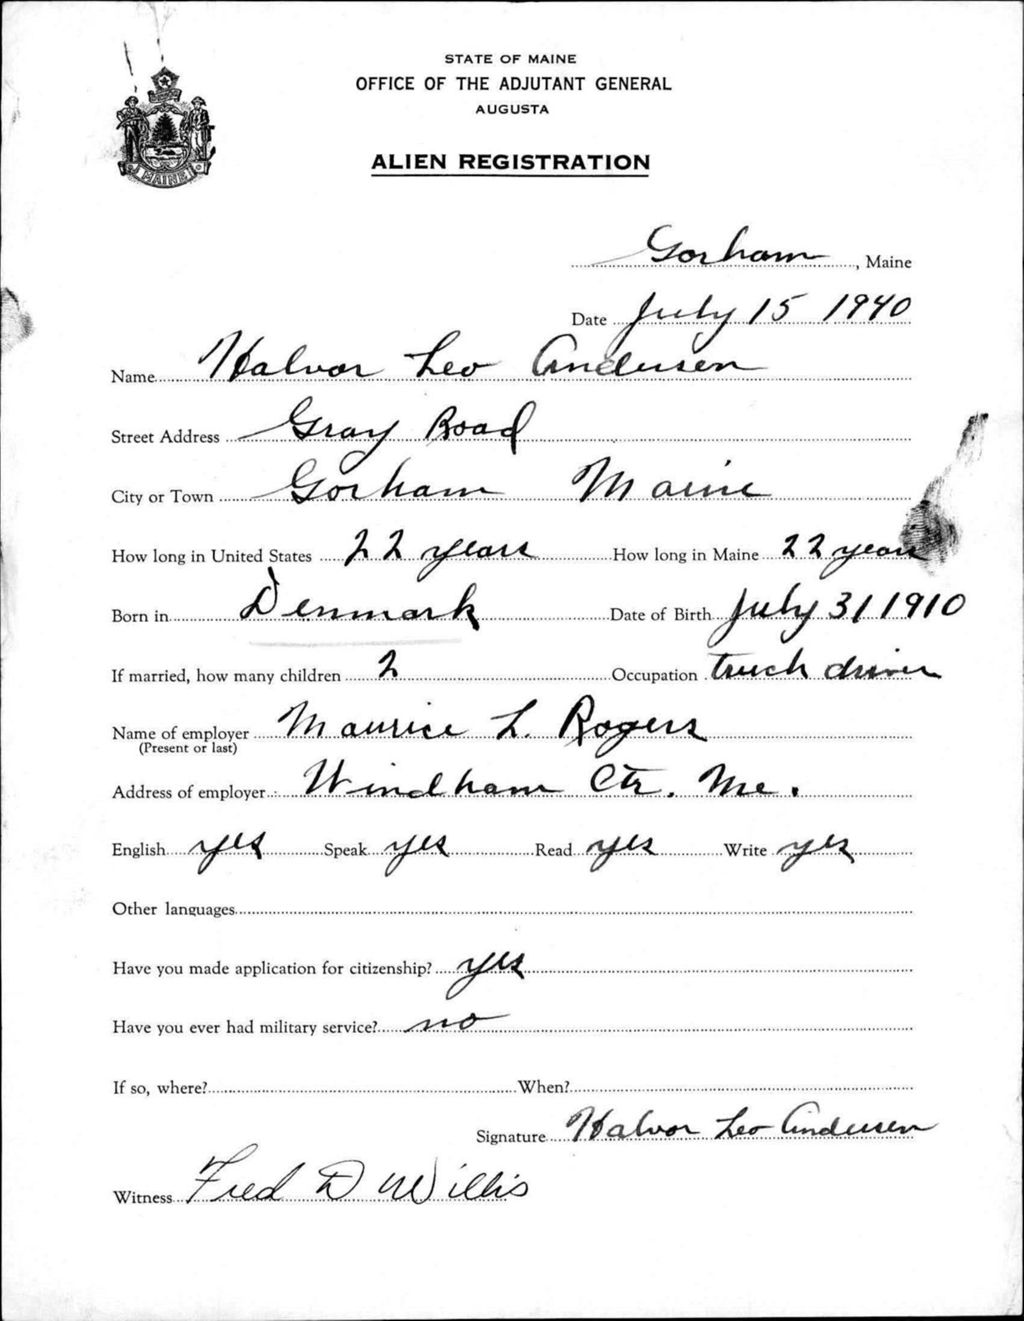 STATE OF MAINE
OFFICE OF THE ADJUTANT GENERAL
AUGUSTA
ALIEN REGISTRATION
MAINE
Gorham, Maine
Date July 15 1940
Name Halvor Leo Andersen
Street Address Gray Road
City or Town Gorham Maine
How long in United States 22 years How long in Maine 22 years
Born in Denmark Date of Birth July 31 1910
If married, how many children 2 Occupation truck driver
Name of employer Maurice L. Rogers
(Present or last)
Address of employer Windham Ctr. Me.
English yes Speak yes Read yes Write yes
Other languages
Have you made application for citizenship? yes
Have you ever had military service? no
If so, where? When?
Signature Halvor Leo Andersen
Witness Fred D Willis